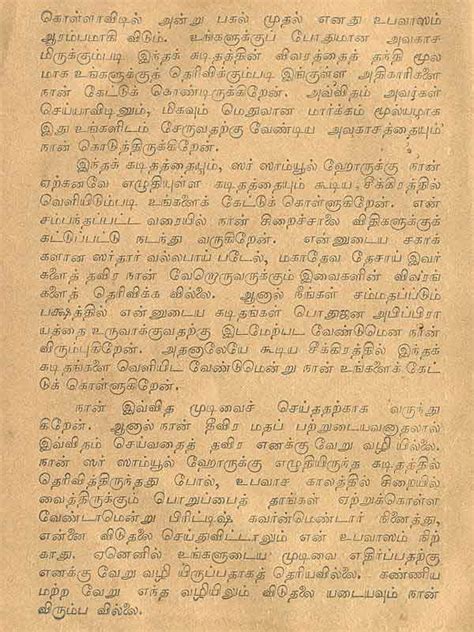 கொள்ளாவிடில் அன்று பகல் முதல் எனது உபவாஸம்
ஆரம்பமாகி விடும். உங்களுக்குப் போதுமான அவகாச
மிருக்கும்படி இந்தக் கடிதத்தின் விவரத்தைத் தந்தி மூல
மாக உங்களுக்குத் தெரிவிக்கும்படி இங்குள்ள அதிகாரிகளை
நான் கேட்டுக் கொண்டிருக்கிறேன். அவ்விதம் அவர்கள்
செய்யாவிடினும், மிகவும் மெதுவான மார்க்கம் மூலயமாக
இது உங்களிடம் சேருவதற்கு வேண்டிய அவகாசத்தையும்
நான் கொடுத்திருக்கிறேன்.
இந்தக் கடிதத்தையும், ஸர் ஸாம்யூல் ஹோருக்கு நான்
ஏற்கனவே எழுதியுள்ள கடிதத்தையும் கூடிய சீக்கிரத்தில்
வெளியிடும்படி உங்களைக் கேட்டுக் கொள்ளுகிறேன். என்
சம்பந்தப்பட்ட வரையில் நான் சிறைச்சாலை விதிகளுக்குக்
கட்டுப்பட்டு நடந்து வருகிறேன். என்னுடைய சகாக்
களான ஸர்தார் வல்லபாய் படேல், மகாதேவ தேசாய் இவர்
களைத் தவிர நான் வேறொருவருக்கும் இவைகளின் விவரங்
களைத் தெரிவிக்க வில்லை. ஆனால் நீங்கள் சம்மதப்படும்
பக்ஷத்தில் என்னுடைய கடிதங்கள் பொதுஜன அபிப்பிரா
யத்தை உருவாக்குவதற்கு இடமேற்பட வேண்டுமென நான்
விரும்புகிறேன். அதனாலேயே கூடிய சீக்கிரத்தில் இந்தக்
கடிதங்களை வெளியிட வேண்டுமென்று நான் உங்களைக் கேட்
டுக் கொள்ளுகிறேன்.
நான் இவ்வித முடிவைச் செய்ததற்காக வருந்து
கிறேன். ஆனால் நான் தீவிர மதப் பற்றுடையவனாதலால்
இவ்விதம் செய்வதைத் தவிர எனக்கு வேறு வழி யில்லை.
நான் ஸர் ஸாம்யூல் ஹோருக்கு எழுதியிருந்த கடிதத்தில்
தெரிவித்திருந்தது போல, உபவாச காலத்தில் சிறையில்
வைத்திருக்கும் பொறுப்பைத் தாங்கள் ஏற்றுக்கொள்ள
வேண்டாமென்று பிரிட்டிஷ் கவர்ன்மெண்டார் நினைத்து,
என்னை விடுதலை செய்துவிட்டாலும் என் உபவாஸம் நிற்
காது. ஏனெனில் உங்களுடைய முடிவை எதிர்ப்பதற்கு
எனக்கு வேறு வழி யிருப்பதாகத் தெரியவில்லை. கண்ணிய
மற்ற வேறு எந்த வழியிலும் விடுதலை யடையவும் நான்
விரும்ப வில்லை.